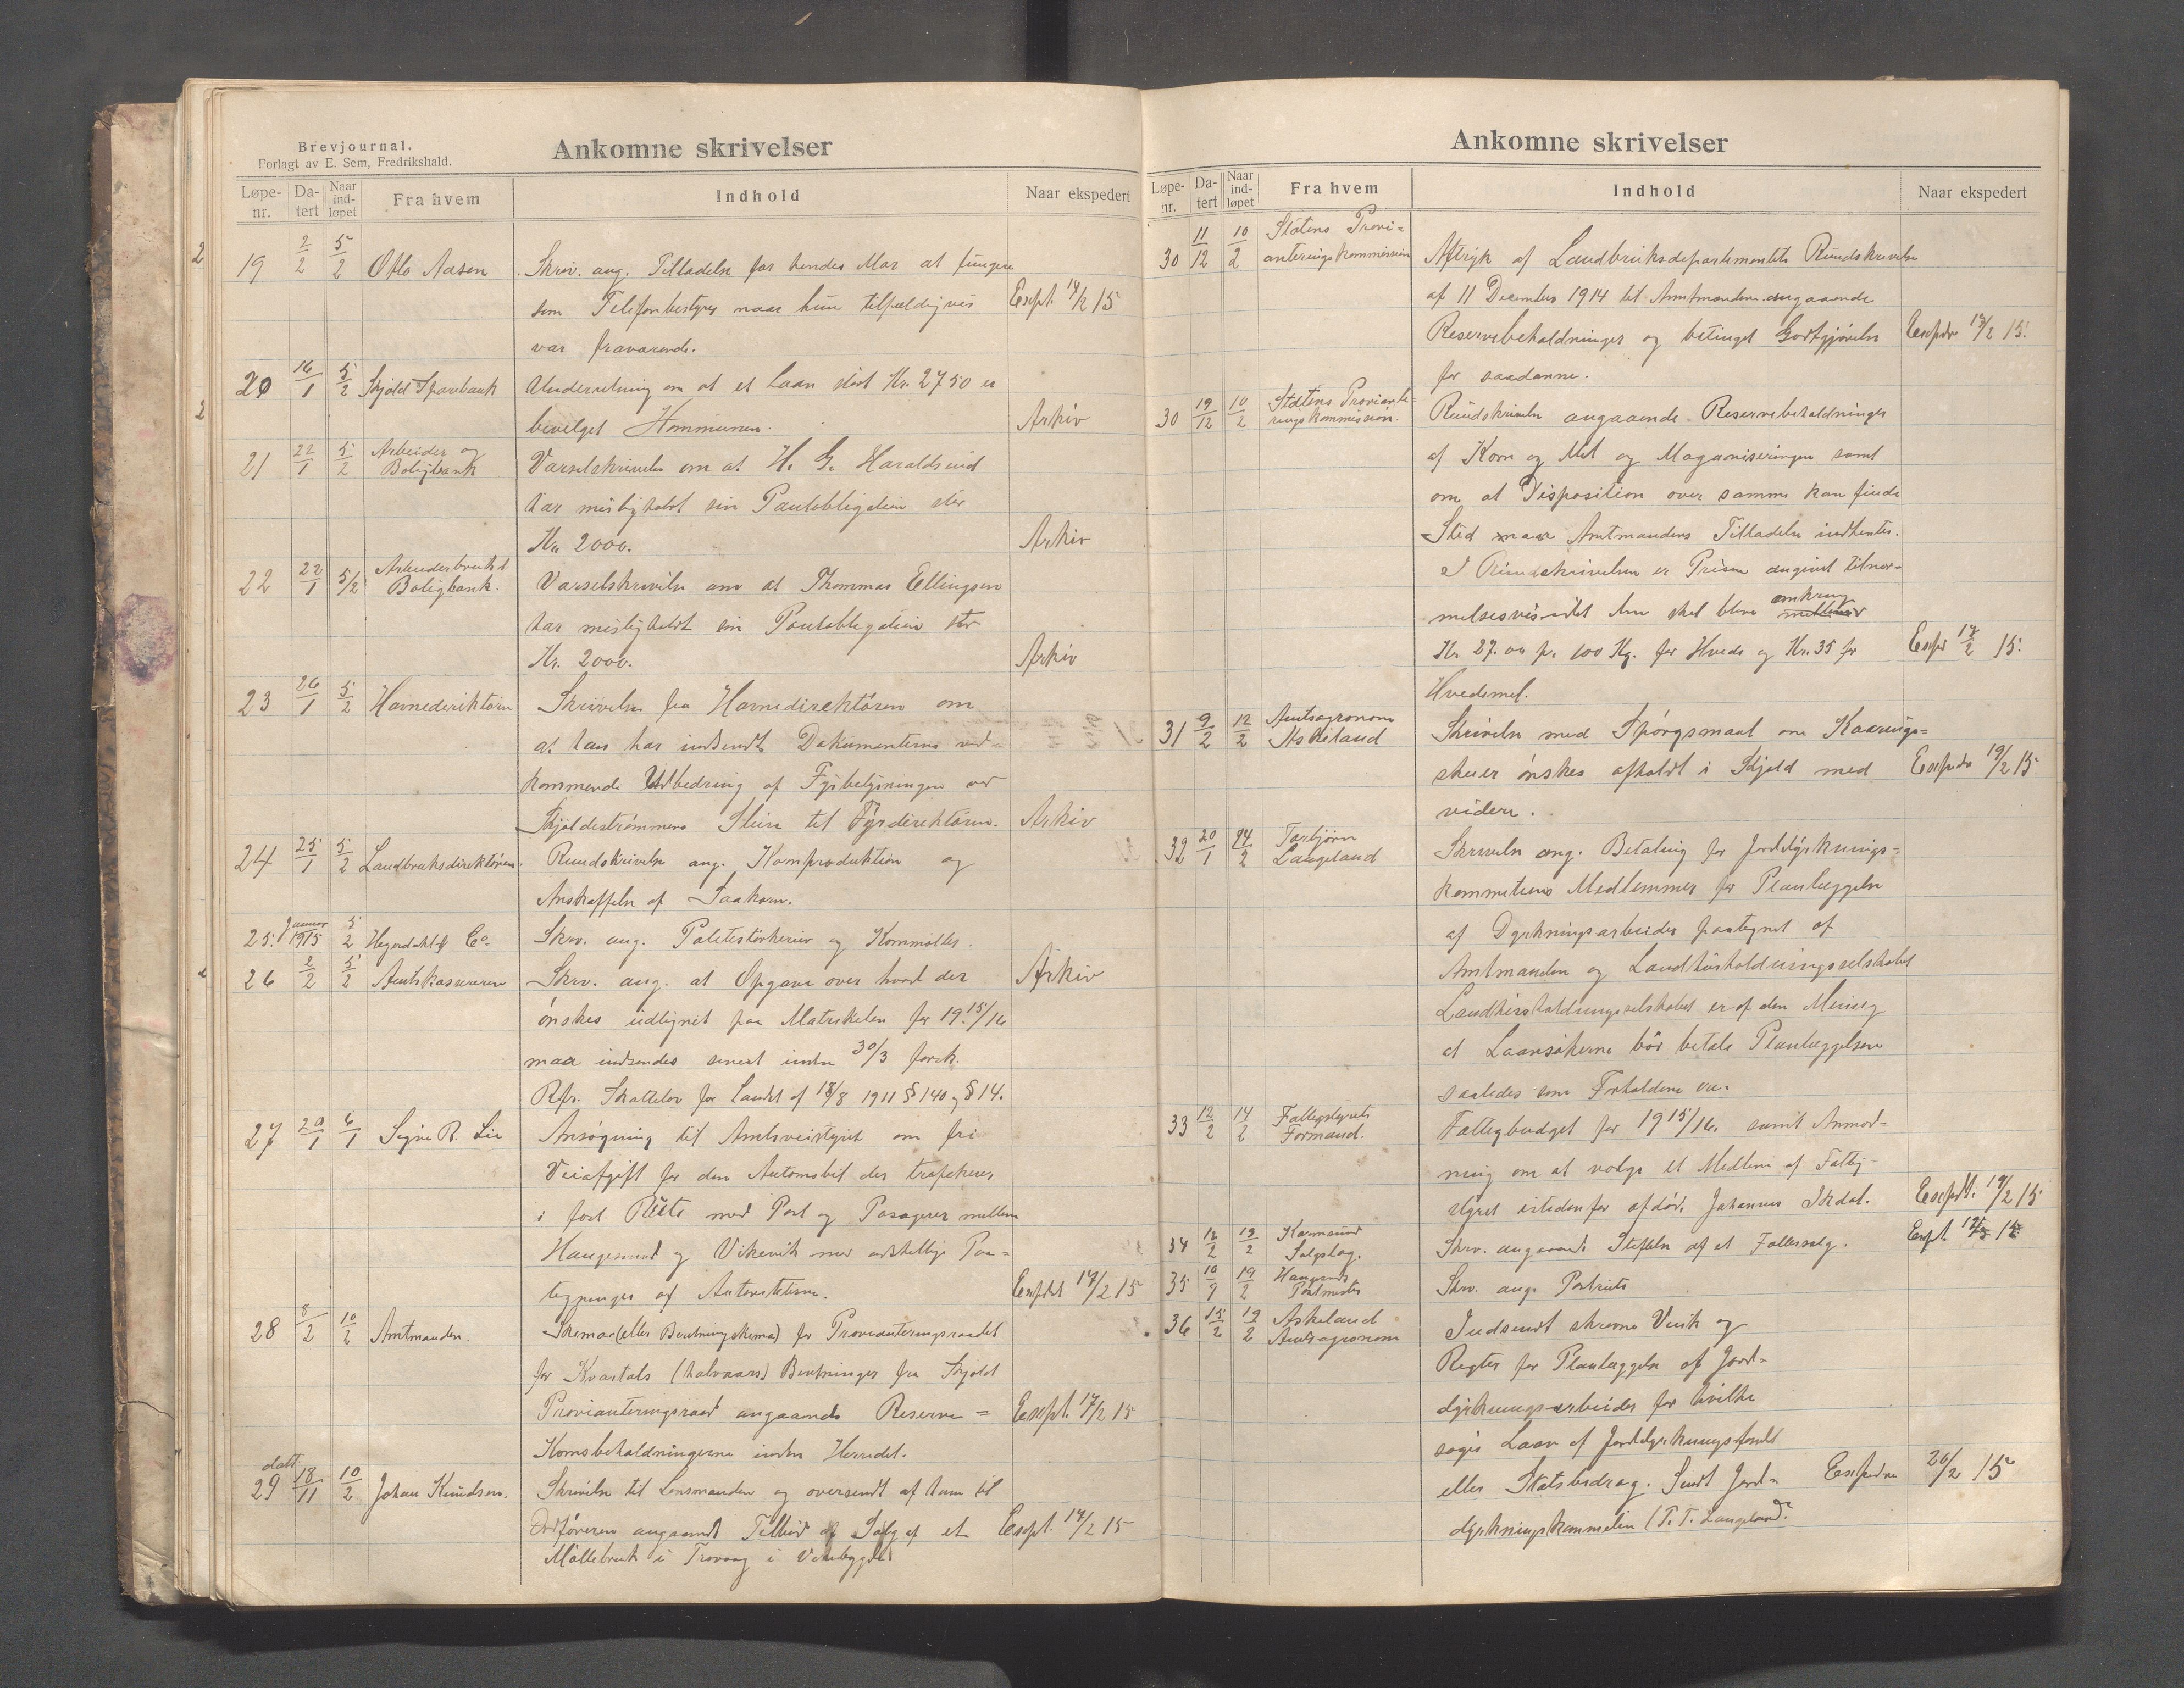 Brevjournal.
Forlagt av E. Sem, Fredrikshald.
Ankomne skrivelser
Løpe-nr. Da-tert Naar ind-løpet Fra hvem Indhold Naar ekspedert
19 2/2 5/2 Otto Aasen Skriv. ang. Tilladelse for hendes Mor at fungere
som Telefonbestyrer naar hun tilfældigvis Exspt. 17/2 15
var fraværende.
20 16/1 5/2 Skjold Sparebank Underretning om at et Laan stort Kr. 2750 er
bevilget Kommunen. Arkiv
21 22/1 5/2 Arbeider og Boligbank Varselskrivelse om at H. G. Haraldseid
har misligholdt sin Pantobligation stor
Kr. 2000. Arkiv
22 22/1 5/2 Arbeiderbruk & Boligbank. Varselskrivelse om at Thommas Ellingsen
har misligholdt sin Pantobligation stor
Kr. 2000. Arkiv
23 26/1 5/2 Havnederiktøren Skrivelse fra Havnedirektøren om
at han har indsendt Dokumenterne ved-
kommende Udbedring af Fyrbelysningen ved
Skjoldestrømmens Sluse til Fyrdirektøren. Arkiv
24 25/1 5/2 Landbruksdirektøren Rundskrivelse ang. Kornproduktion og
Anskaffelse af Saakorn.
25. Januar 1915 5/2 Hegerdahl & Co. Skrv. ang. Kornmøller.
26 2/2 5/2 Amtskassereren Skrv. ang. at Opgave over hvad der Arkiv
ønskes udlignet paa Matrikelen for 1915/16
maa indsendes senest inden 30/3 førstk.
Rfr. Skattelov for Landet af 18/8 1911 § 140 og § 14.
27 29/1 6/1 Signe R. Lie Ansøgning til Amtsveistyret om fri
Veiafgift for den Automobil der trafikerer
i fast Rute med Post og Pasagerer mellem
Haugesund og Vikevik med adskellige Paa-
tegninger af Autoriteterne. Expdt 17/2 15
28 8/2 10/2 Amtmanden. Skemaer (eller Beretningskema) for Provianteringsraadet
for Kvartals (halvaars) Beretninger fra Skjold
Provianteringsraad angaaende Reserve= Exspt. 17/2 15
Kornsbeholdningerne inden Herredet.
29 datt. 18/11 10/2 Johan Knudsen. Skrivelse til Lensmanden og oversendt af ham til
Ordføreren angaaende Tilbud af Salg af et Exspt. 17/2 15
Møllebruk i Trovaag i Vikebygd
Ankomne skrivelser
Løpe-nr. Da-tert Naar ind-løpet Fra hvem Indhold Naar ekspedert
30 11/12 10/2 Statens Provi=anteringskommission Aftryk af Landbruksdepartementets Rundskrivelse
af 11 December 1914 til Amtmændene angaaende
Reservebeholdninger og betinget Godtgjørelse Exspdr 17/2 15.
for saadanne.
30 19/12 10/2 Statens Provianteringskommission. Rundskrivelse angaaende Reservebeholdninger
af Korn og Mel og Magasiniseringen samt
om at Disposition over samme kan finde
Sted naar Amtmandens Tilladelse indhentes.
I Rundskrivelsen er Prisen angivet tilnær-
melsesvis idet den skal blive mellem omkring
Kr. 27.00 pr. 100 Kg. for Hvede og Kr. 35 for Exspr 17/2 15.
Hvedemel.
31 9/2 12/2 Amtsagronom Askeland Skrivelse med Spørgsmaal om Kaarings=
skuer ønskes afholdt i Skjold med Exspdr 19/2 15
videre.
32 20/1 14/2 Torbjørn Langeland Skrivelse ang. Betaling for Jorddyrknings=
kommiteens Medlemmer for Planlæggelse
af Dyrkningsarbeider paategnet af
Amtmanden og Landhusholdningsselskabet
Landhusholdningsselskabet er af den Mening
at Laansøkerne bør betale Planlæggelsen
saaledes som Forholdene var.
33 12/2 14/2 Fattigstyrets Formand. Fattigbudget for 1915/16. samt Anmod-
ning om at vælge et Medlem af Fattig-
styret istedenfor afdøde Johannes Ikdal. Exspdt. 19/2 15
34 12/2 19/2 Karmsund Salgslag. Skrv. angaaende Støttelse af et Fællessalg. Exspt 19/2 15
35 10/9 19/2 Haugesunds Postmester Skrv. ang. Postrute
36 15/2 19/2 Askeland Amtsagronom Indsendt skreme og
Regler for Planlæggelse af Jord=
dyrkningsarbeider for hvilke
søges Laan af Jorddyrkningsfondet
eller Statsbidrag. Sendt Jord= Exspedr 20/2 15
dyrkningskommiteen (T. T. Langeland.